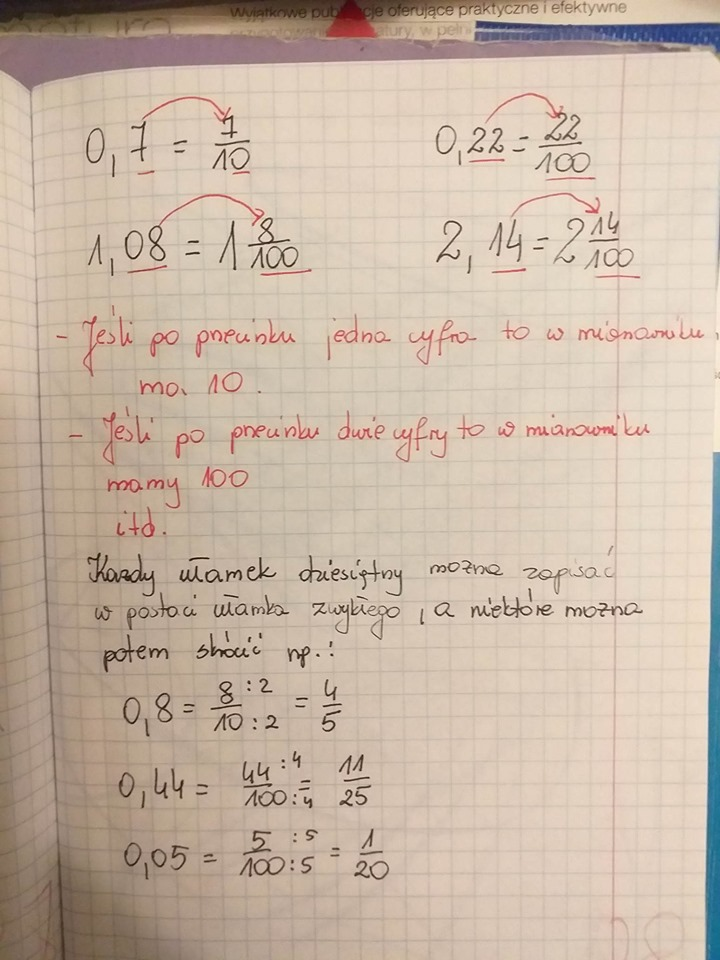 Wyjątkowe publikacje oferujące praktyczne i efektywne
0,7 = 7/10
0,22 = 22/100
1,08 = 1 8/100
2,14 = 2 14/100
- Jeśli po przecinku jedna cyfra to w mianowniku
ma 10.
- Jeśli po przecinku dwie cyfry to w mianowniku
mamy 100
itd.
Każdy ułamek dziesiętny można zapisać
w postaci ułamka zwykłego, a niektóre można
potem skócić np.:
0,8 = 8 : 2/10 : 2 = 4/5
0,44 = 44 : 4/100 : 4 = 11/25
0,05 = 5 : 5/100 : 5 = 1/20